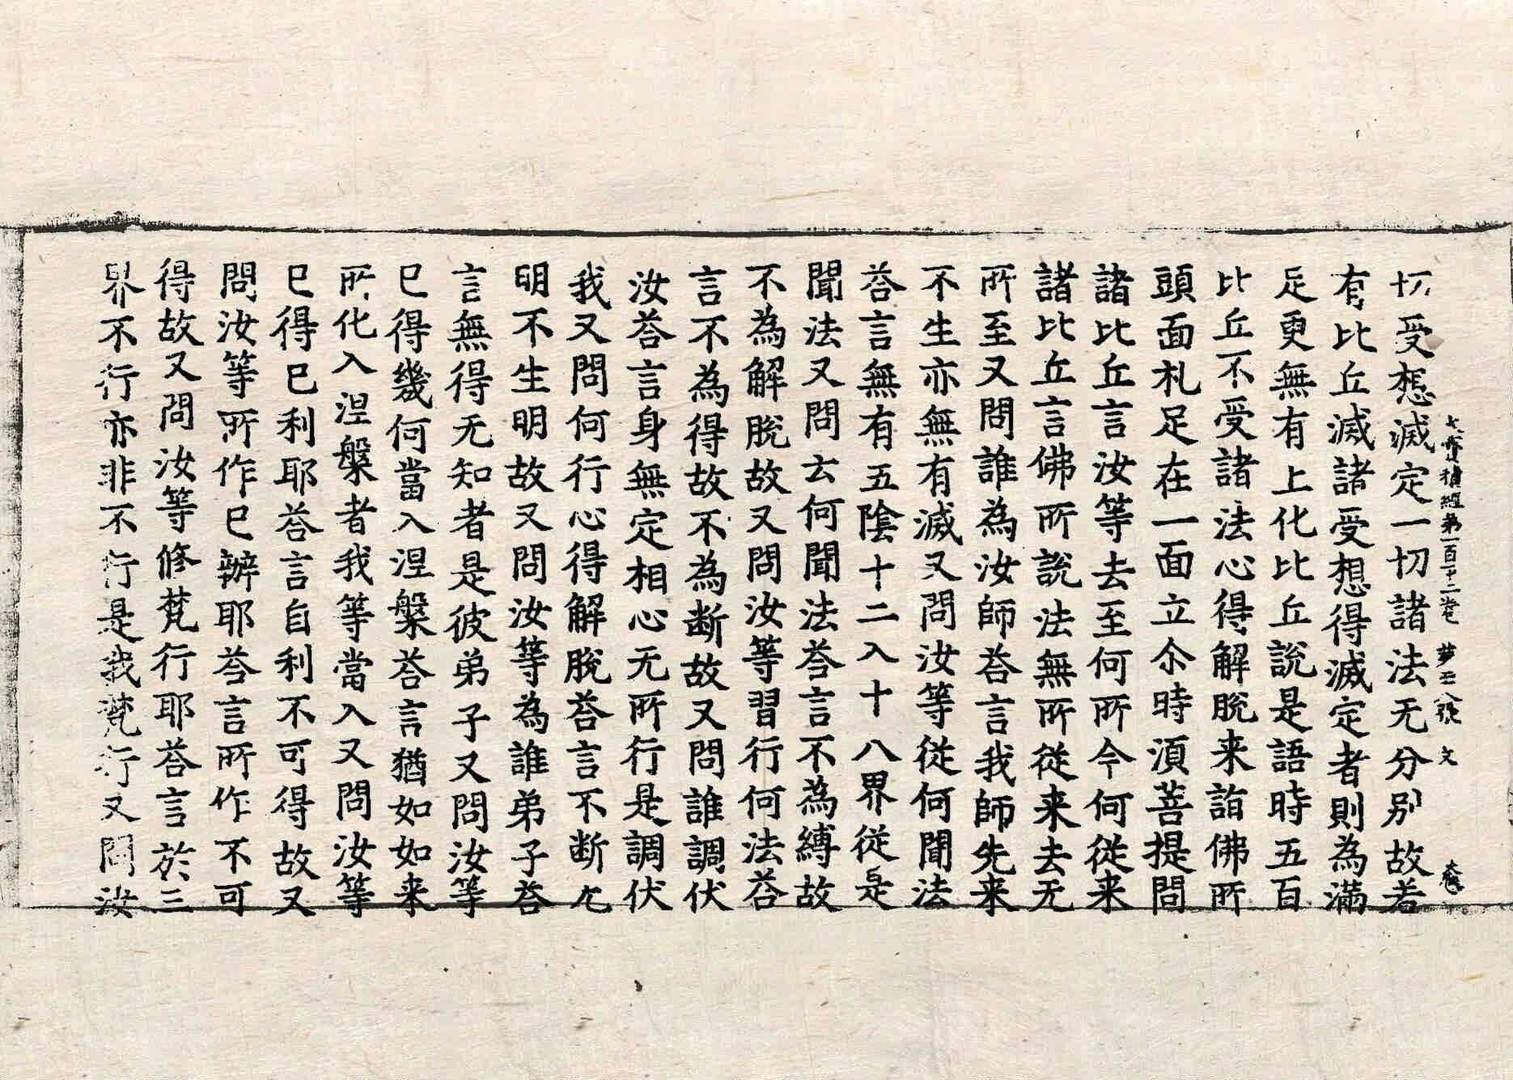 切受想滅定一切諸法无分別故若
大寶積經第一百十二卷 第十八張 文
有比丘滅諸受想得滅定者則為滿
足更無有上化比丘說是語時五百
比丘不受諸法心得解脫来詣佛所
頭面札足在一面立尒時湏菩提問
諸比丘言汝等去至何所今何從来
諸比丘言佛所說法無所從来去无
所至又問誰為汝師荅言我師先来
不生亦無有滅又問汝等從何聞法
荅言無有五陰十二入十八界從是
聞法又問云何聞法荅言不為縛故
不為解脫故又問汝等習行何法荅
言不為得故不為断故又問誰調伏
汝荅言身無定相心无所行是調伏
我又問何行心得解脫荅言不断无
明不生明故又問汝等為誰弟子荅
言無得无知者是彼弟子又問汝等
已得幾何當入涅槃荅言猶如如来
所化入涅槃者我等當入又問汝等
已得已利耶荅言自利不可得故又
問汝等所作已辦耶荅言所作不可
得故又問汝等修梵行耶荅言於三
界不行亦非不行是我梵行又問汝